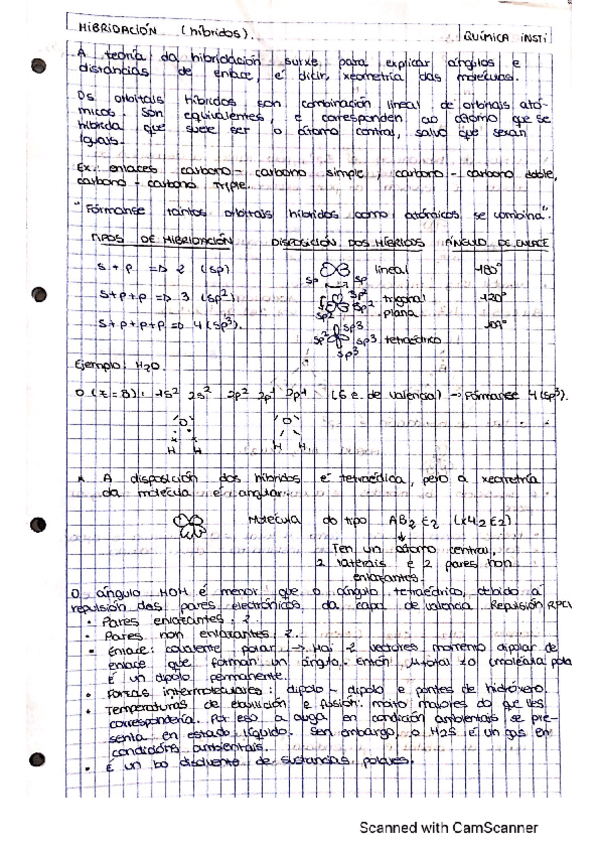 HIBRIDACIÓN (híbridos).
QUÍMICA INSTI
A teoría da hibridación surxe para explicar ángulos e
distancias de enlace, é dicir, xeometría das moléculas.
Os orbitais híbridos son combinación lineal de orbitais ató-
micos. Son equivalentes, e corresponden ao átomo que se
hibrida que suele ser o átomo central, salvo que sexan
iguais.
Ex.: enlaces carbono - carbono simple, carbono - carbono doble,
carbono - carbono triple.
"Fórmanse tantos orbitais híbridos como atómicos se combina".
TIPOS DE HIBRIDACIÓN DISPOSICIÓN DOS HÍBRIDOS ÁNGULO DE ENLACE
s + p => 2 (sp) sp sp lineal 180°
s+p+p => 3 (sp2) sp2 sp2 sp2 trigonal plana 120°
s+p+p+p => 4(sp3). sp3 sp3 sp3 sp3 tetraédrico 109°
Ejemplo: H2O.
O (Z=8): 1s2 2s2 2p2 2p1 2p1 (6 e. de valencia) -> Fórmanse 4(sp3).
O O
H H H H
* A disposición dos híbridos é tetraédica, pero a xeometría
da molécula é angular.
Molécula do tipo AB2E2
Ten un átomo central,
2 laterais e 2 pares non
enlazantes
O ángulo HOH é menor que o ángulo tetraédrico, debido á
repulsión dos pares electrónicos da capa de valencia. Repulsión RPCV
• Pares enlazantes: 2.
• Pares non enlazantes 2.
• Enlace: covalente polar -> Hai 2 vectores momento dipolar de
enlace que forman un ángulo. Entón μtotal ≠0 (molécula polar
É un dipolo permanente.
• Forzas intermoleculares: dipolo - dipolo e pontes de hidróxeno.
• Temperaturas de ebulición e fusión: moito maiores do que lles
correspondería. Por eso a auga en condición ambientais se pre-
senta en estado líquido. Sen embargo, o H2S é un gas en
condicións ambientais.
• É un bo disolvente de sustancias polares.
Scanned with CamScanner